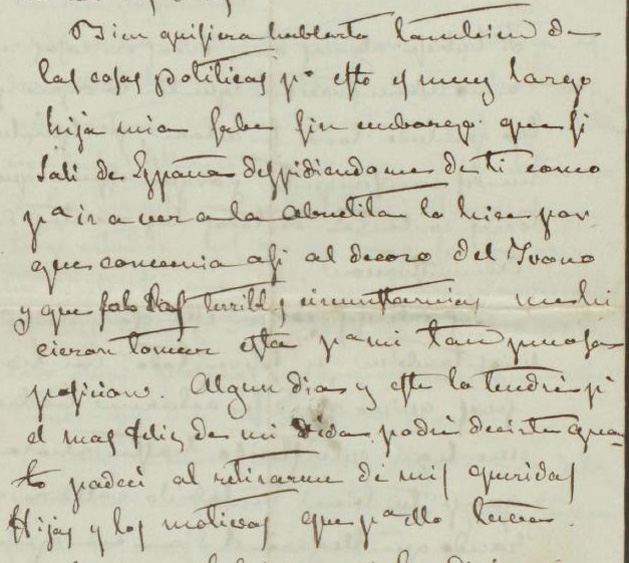 Bien quisiera hablarte tambien de
las cosas politicas pº esto es muy largo
hija mia sabe sin embargo que si
Sali de España despidiendome de ti como
pª ir a ver a la Abuelita lo hice por
que convenia asi al decoro del Trono
y que solo las circunstancias me hi
cieron tomar esta pª mi tan penosa
posicion. Algun dia y este lo tendré pr
el mas feliz de mi vida podré decirte quan
to padecí al retirarme de mis queridas
Hijas y los motivos que pª ello tuve.